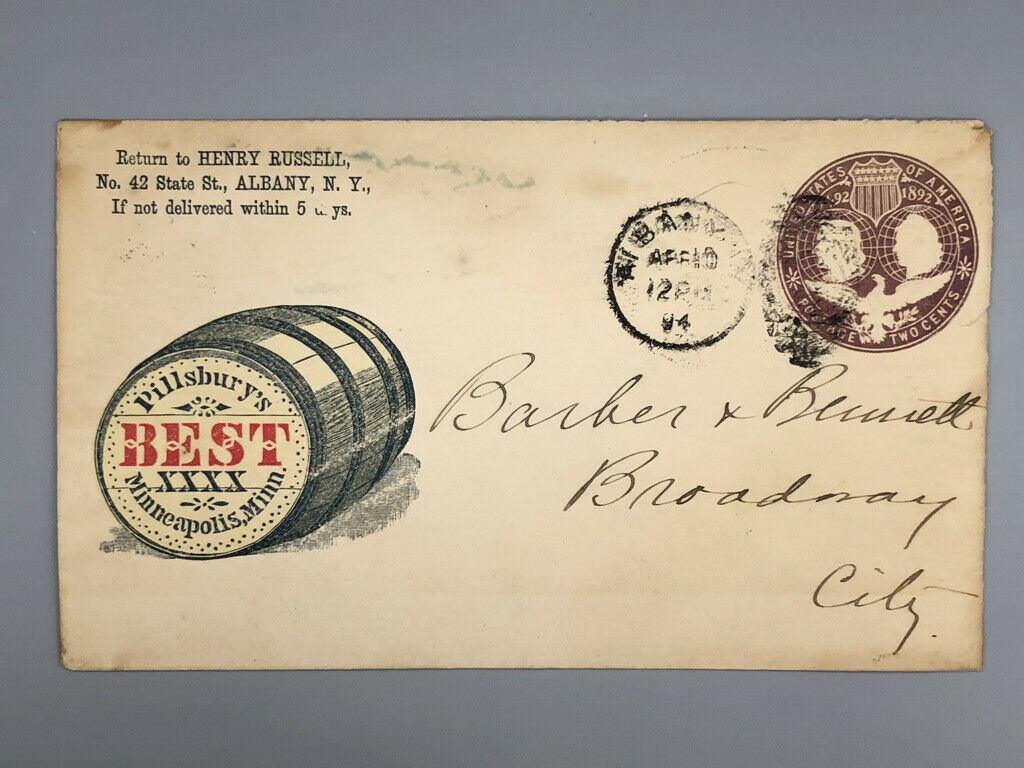 Return to HENRY RUSSELL,
No. 42 State St., ALBANY, N. Y.,
If not delivered within 5 ys.
ALBANY
APR 10
12 PM
94
UNITED STATES OF AMERICA
92 1892
POSTAGE TWO CENTS
Pillsbury's
BEST
XXXX
Minneapolis, Minn.
Barber & Bennett
Broadway
City.